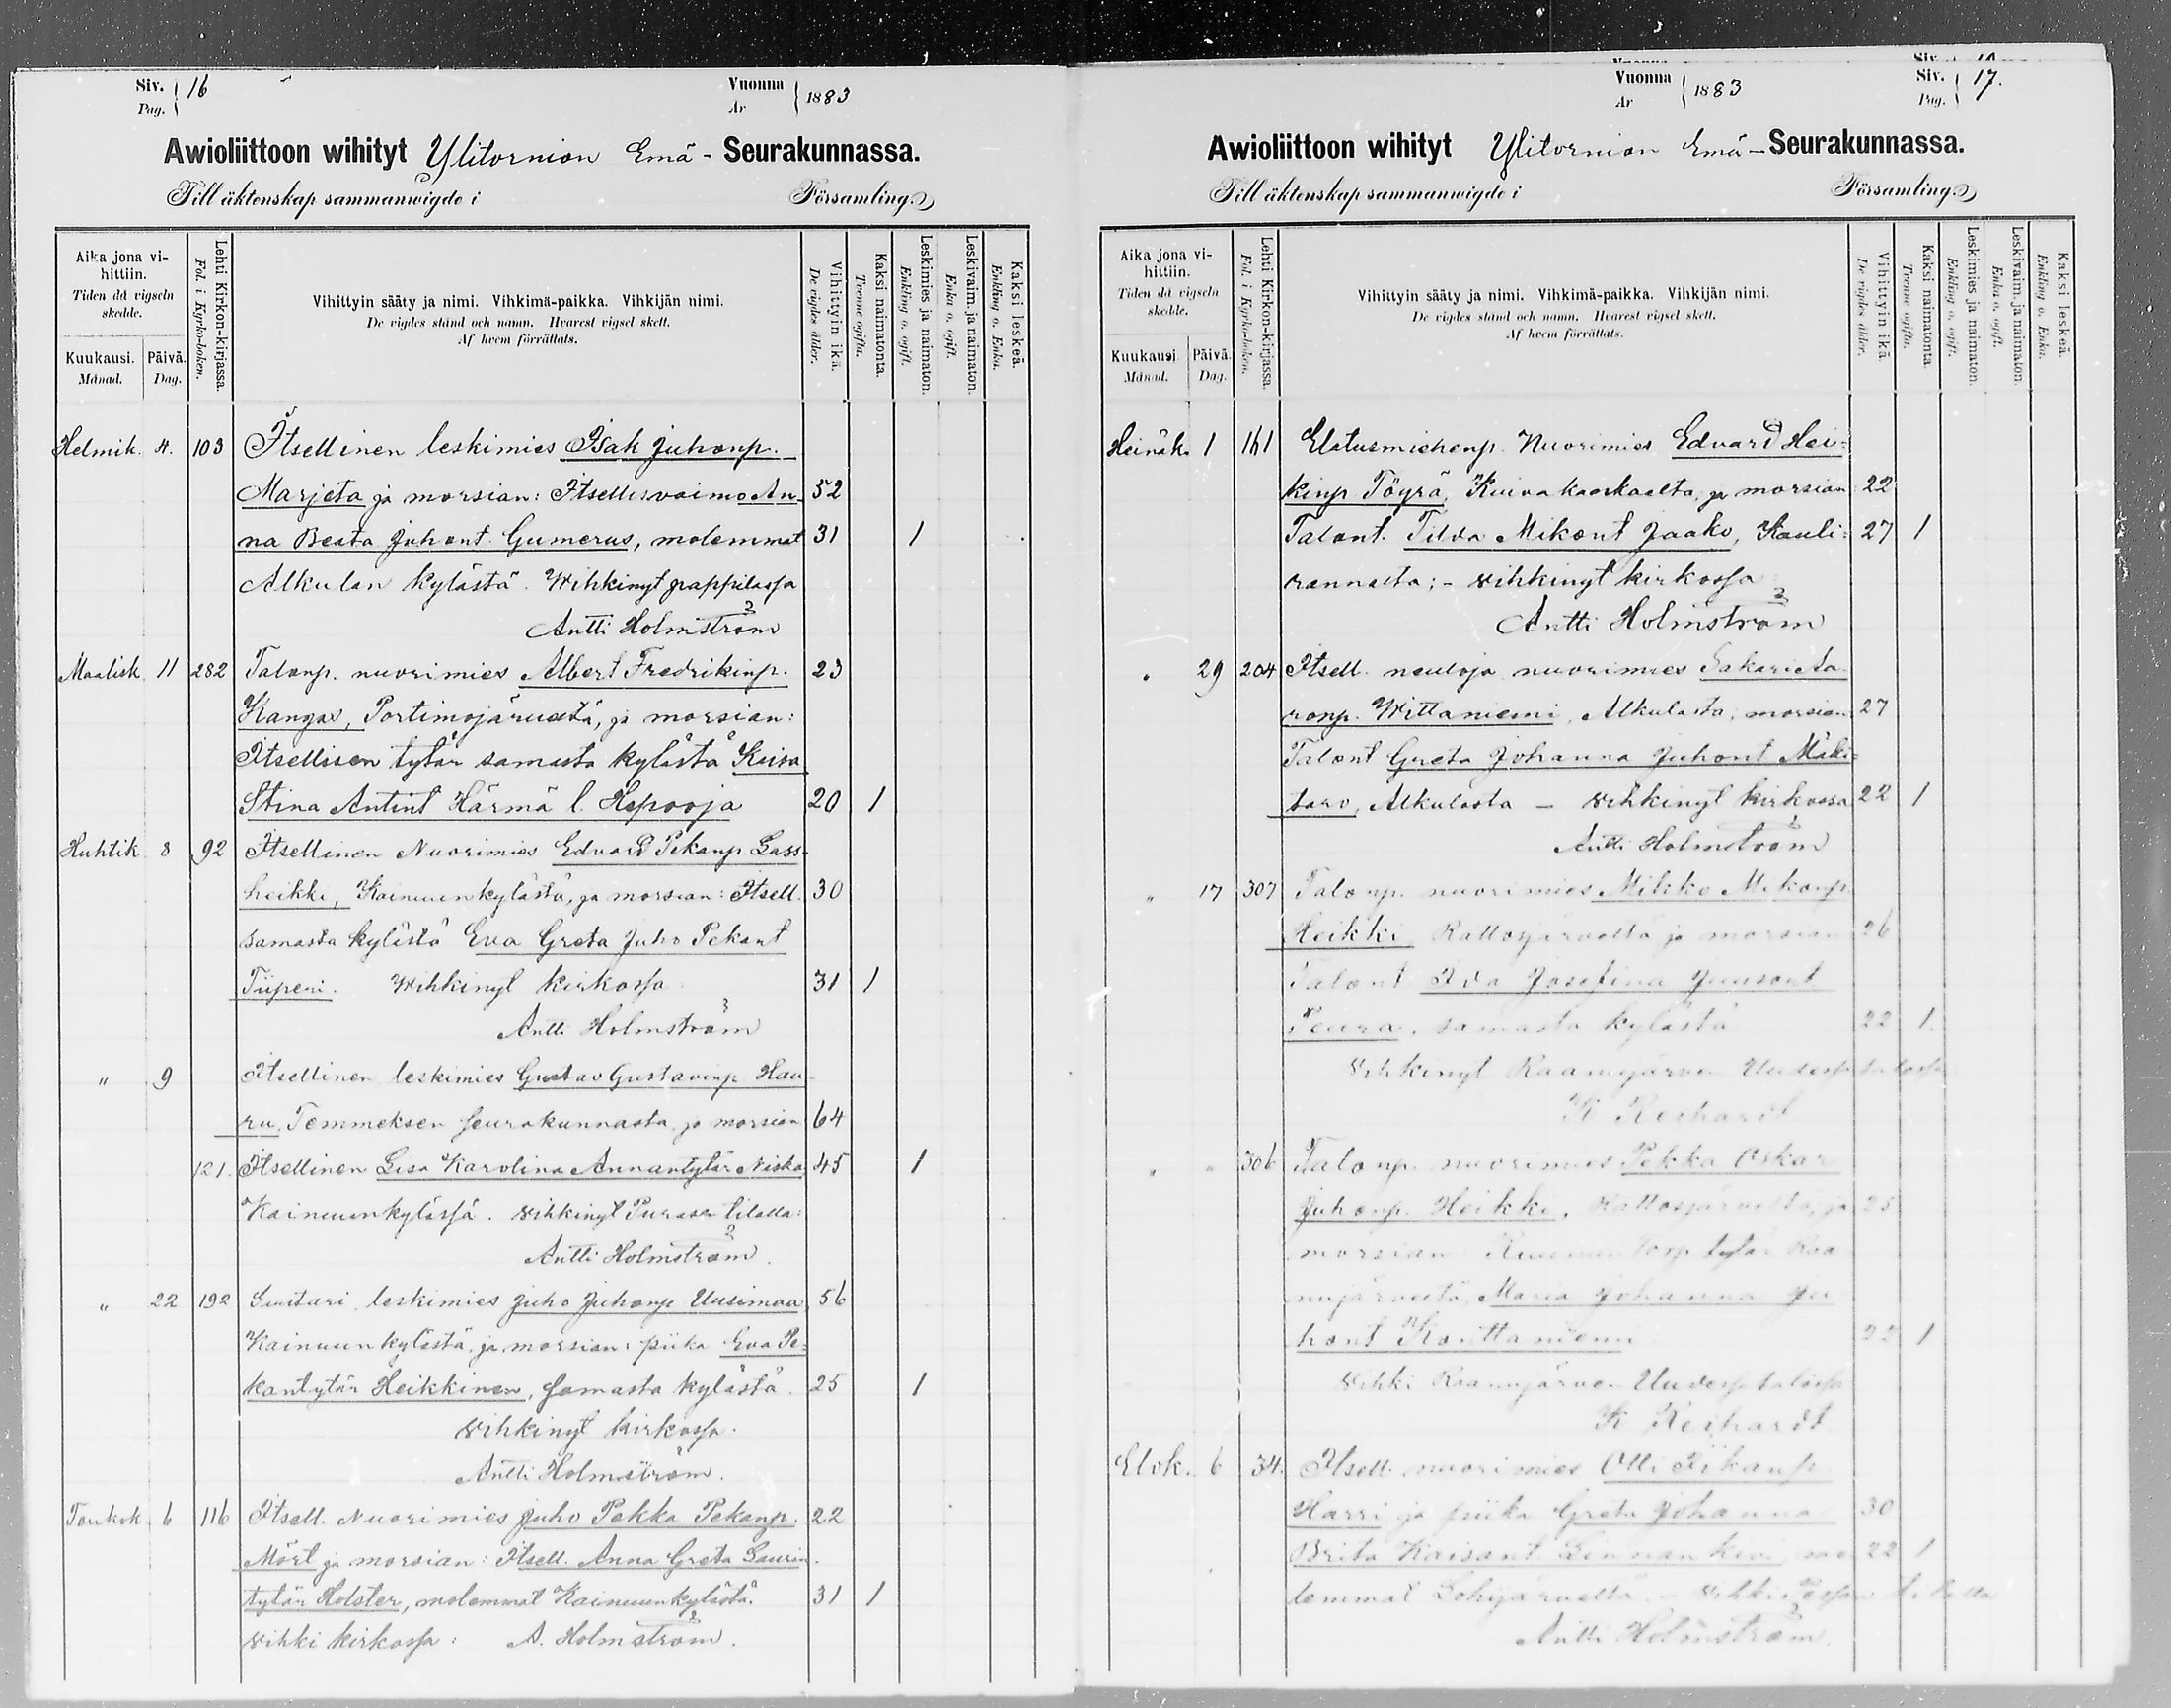 Siv. 16
Pag.
Vuonna 1883
År
Awioliittoon wihityt Ylitornion Emä- Seurakunnassa.
Till äktenskap sammanwigde i Församling.
Aika jona vi-
hittiin.
Tiden då vigseln
skedde.
Kuukausi. Päivä.
Månad. Dag.
Lehti Kirkon-kirjassa.
Fol. i Kyrko-boken.
Vihittyin sääty ja nimi. Vihkimä-paikka. Vihkijän nimi.
De vigdes stånd och namn. Hvarest vigsel skett.
Af hvem förrättats.
Vihittyin ikä.
De vigdes ålder.
Kaksi naimatonta.
Tvenne ogifta.
Leskimies ja naimaton.
Enkling o. ogift.
Leskivaim. ja naimaton.
Enka o. ogift.
Kaksi leskeä.
Enkling o. Enka.
Helmik. 4. 103 Itsellinen leskimies Isak Juhonp.
Marjeta ja morsian: Itsellisvaimo An- 52
na Beata Juhont. Gumerus, molemmat 31 1
Alkulan kylästä. Wihkinyt pappilassa
Antti Holmström
Maalisk 11 282 Talonp. nuorimies Albert Fredrikinp. 23
Kangas, Portimojärvestä, ja morsian:
Itsellisen tytär samasta kylästä Kaisa
Stina Antint Härmä l. Hepooja 20 1
Huhtik 8 92 Itsellinen Nuorimies Edvard Pekanp Lass-
heikki, Kainuunkylästä, ja morsian: Itsell. 30
samasta kylästä Eva Greta Juho Pekant
Tiiperi. Wihkinyt kirkossa 31 1
Antti Holmström
" 9 Itsellinen leskimies Gustav Gustavinp Hau-
ru, Temmeksen seurakunnasta, ja morsian 64
121. Itsellinen Lisa Karolina Annantytär Niska 45 1
Kainuunkylässä. wihkinyt Purasen tilalla:
Antti Holmström.
" 22 192 Suutari leskimies Juho Juhonp Uusimaa 56
Kainuunkylästä, ja morsian: piika Eva Pe-
kantytär Heikkinen, samasta kylästä. 25 1
wihkinyt kirkossa.
Antti Holmström.
Toukok 6 116 Itsell. Nuorimies Juho Pekka Pekanp. 22
Mört ja morsian: Itsell. Anna Greta Laurin-
tytär Holster, molemmat Kainuunkylästä. 31 1
wihki kirkossa: A. Holmström.
Vuonna 1883
År
Siv. 17.
Pag.
Awioliittoon wihityt Ylitornion Emä-Seurakunnassa.
Till äktenskap sammanwigde i Församling.
Aika jona vi-
hittiin.
Tiden då vigseln
skedde.
Kuukausi. Päivä.
Månad. Dag.
Lehti Kirkon-kirjassa.
Fol. i Kyrko-boken.
Vihittyin sääty ja nimi. Vihkimä-paikka. Vihkijän nimi.
De vigdes stånd och namn. Hvarest vigsel skett.
Af hvem förrättats.
Vihittyin ikä.
De vigdes ålder.
Kaksi naimatonta.
Tvenne ogifta.
Leskimies ja naimaton.
Enkling o. ogift.
Leskivaim. ja naimaton.
Enka o. ogift.
Kaksi leskeä.
Enkling o. Enka.
Heinäk. 1 Elatusmiehenp. Nuorimies Edvard Hei-
kinp Töyrä, ja morsian 22
Talont. Tilda Mikont Jaako, Kauli- 27 1
rannasta; - wihkinyt kirkossa
Antti Holmström
" 29 204 Itsell. neuloja nuorimies Sakari Aa-
ronp. Wittaniemi, Alkulasta, morsian 27
Talont Greta Johanna Juhont Mäki-
taro, Alkulasta - wihkinyt kirkossa 22 1
Antti Holmström
" 17 307 Talonp. nuorimies Mikko Mikonp.
Heikki Rattosjärveltä ja morsian 26
Talont Ida Josefina Juusont
Peura, samasta kylästä 22 1
Wihkinyt Raanujärven Uudessa talossa
K Reihardt
" " 306 Talonp. nuorimies Pekka Oskar
Juhonp. Heikki, Rattosjärveltä, ja 25
morsian tytär Raa
nujärveltä, Maria Johanna Ju
hont Konttaniemi 22 1
Wihki Raanujärven Uudessa talossa
K Reihardt
Elok. 6 34. Itsell. nuorimies Olli
Harri ja piika Greta Johanna 30
Brita Kaisant mo 22 1
lemmat Lohijärveltä. - wihki
Antti Holmström.